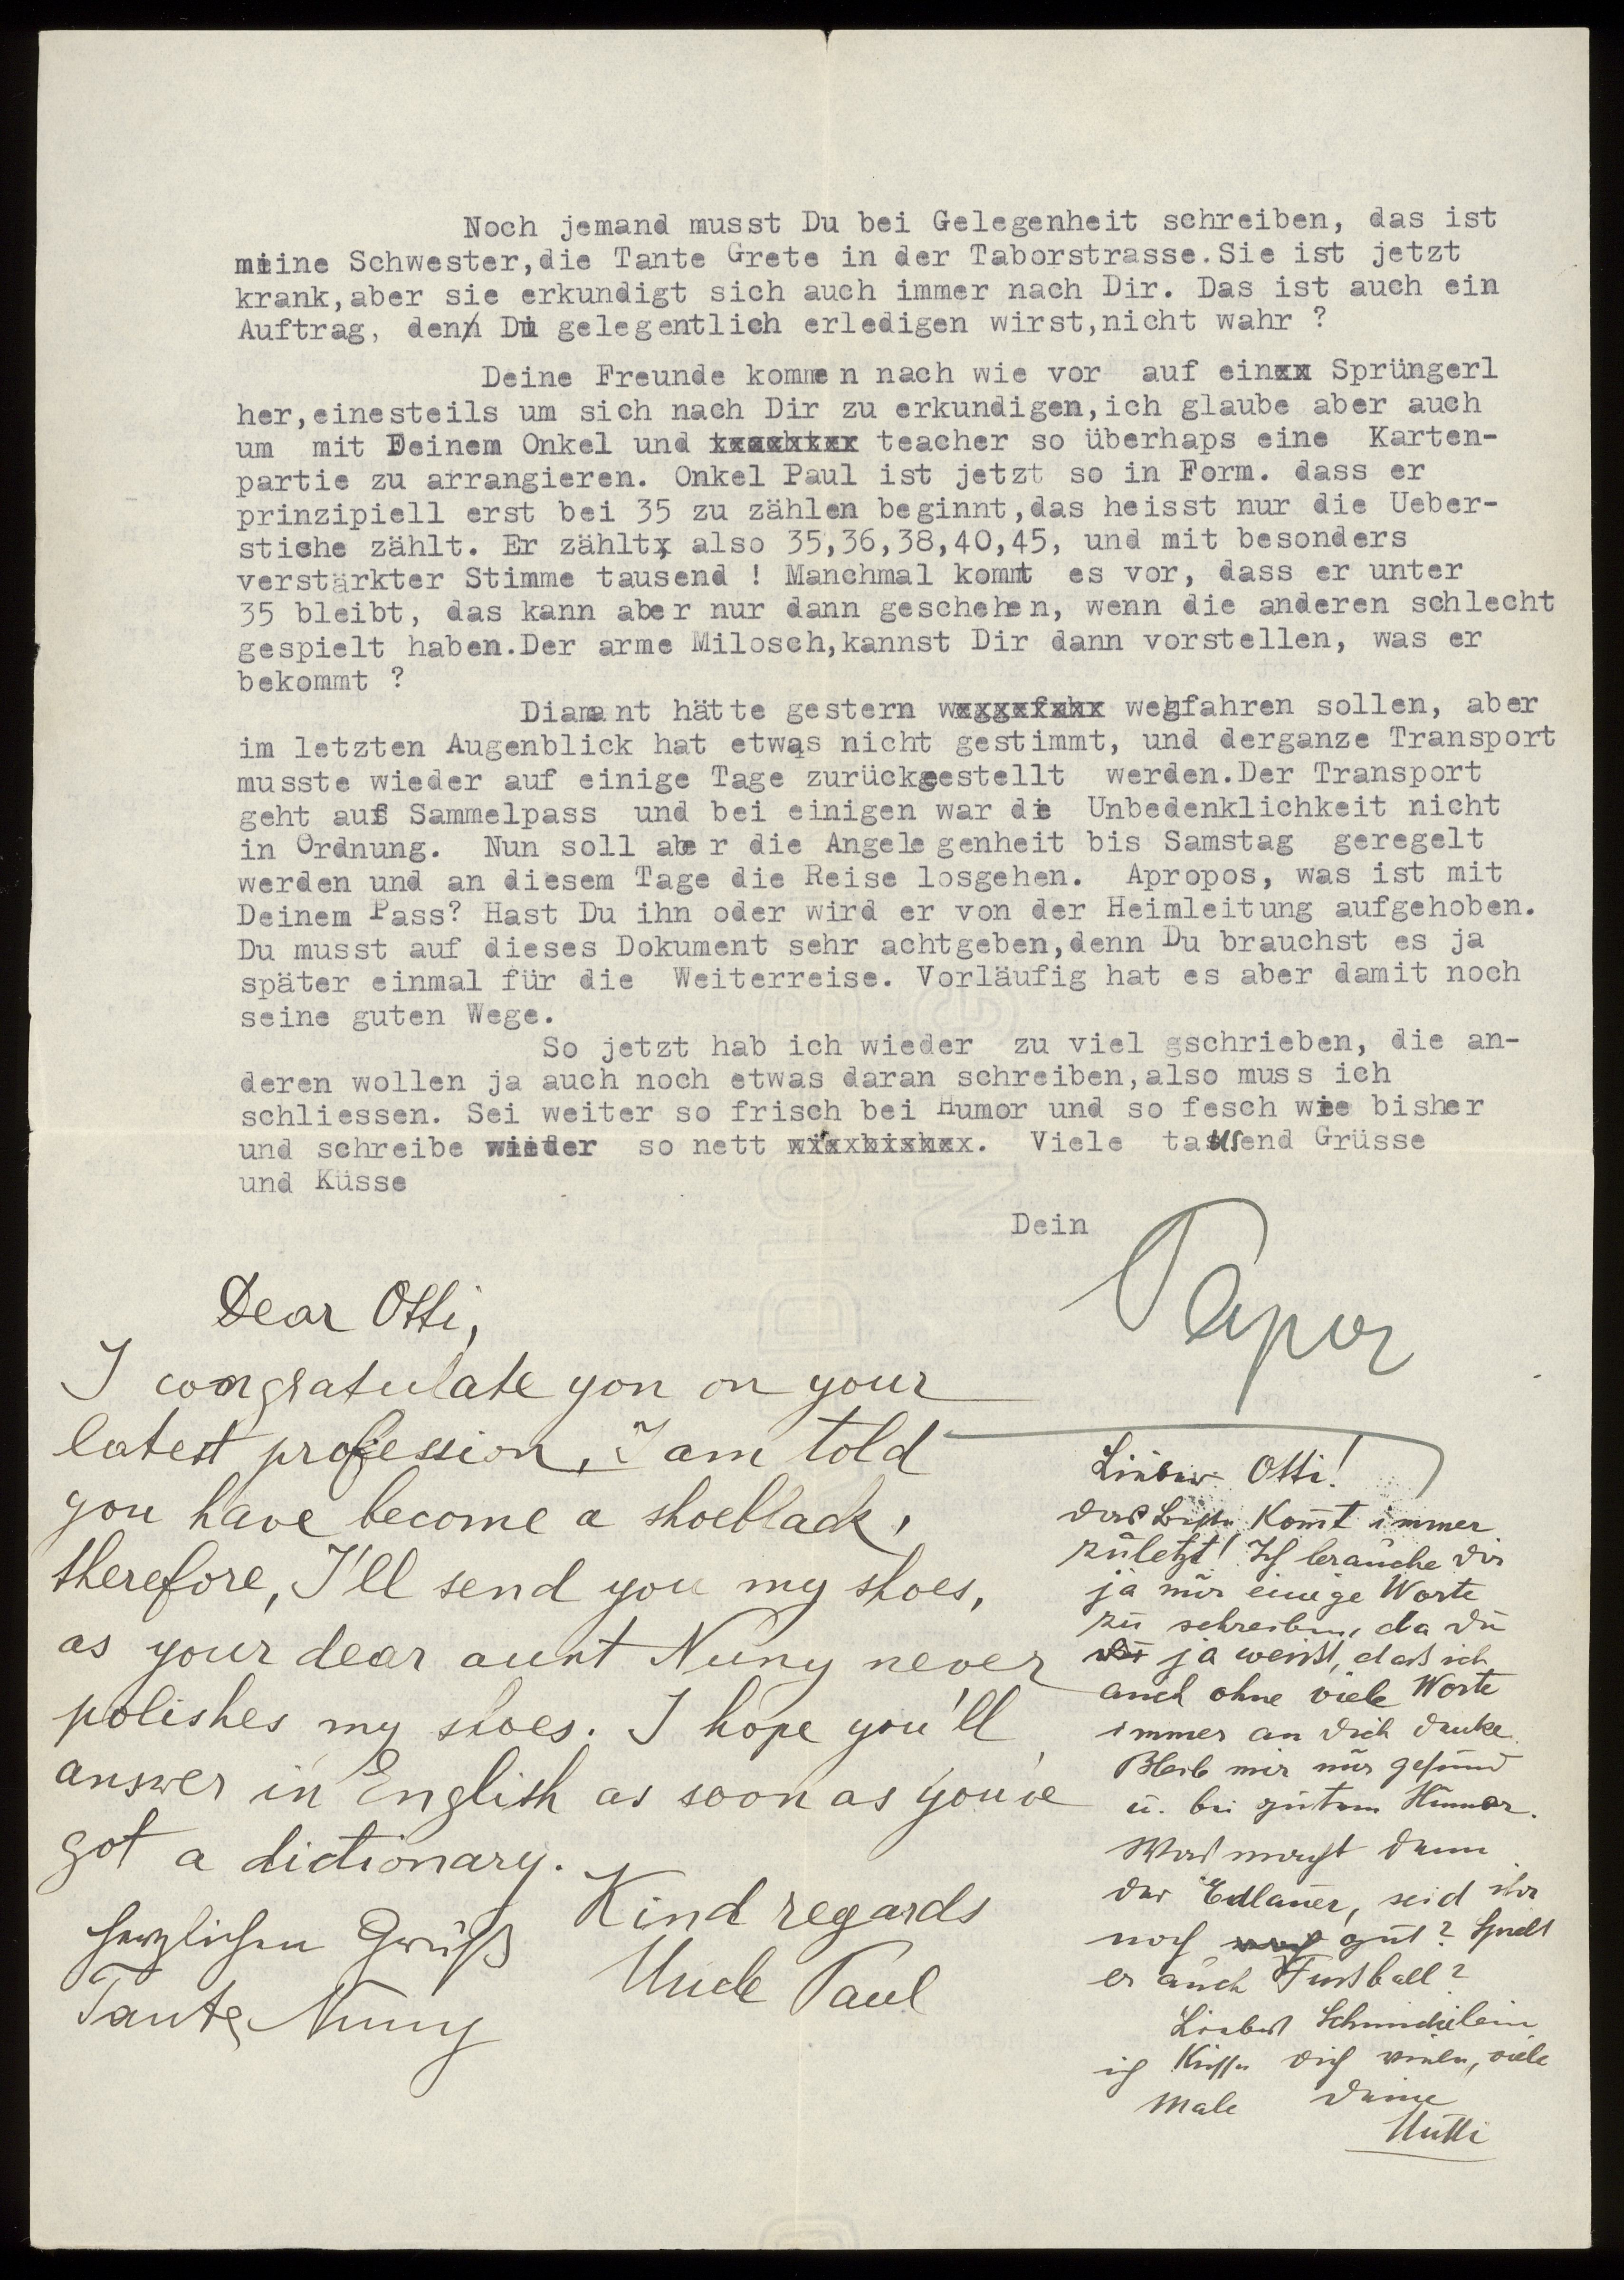 Noch jemand musst Du bei Gelegenheit schreiben, das ist
meine Schwester,die Tante Grete in der Taborstrasse.Sie ist jetzt
krank,aber sie erkundigt sich auch immer nach Dir. Das ist auch ein
Auftrag, den Du gelegentlich erledigen wirst,nicht wahr ?
Deine Freunde kommen nach wie vor auf einxx Sprüngerl
her,einesteils um sich nach Dir zu erkundigen,ich glaube aber auch
um mit Deinem Onkel und teacher so überhaps eine Karten-
partie zu arrangieren. Onkel Paul ist jetzt so in Form. dass er
prinzipiell erst bei 35 zu zählen beginnt,das heisst nur die Ueber-
stiche zählt. Er zählt, also 35,36,38,40,45, und mit besonders
verstärkter Stimme tausend ! Manchmal kommt es vor, dass er unter
35 bleibt, das kann aber nur dann geschehen, wenn die anderen schlecht
gespielt haben.Der arme Milosch,kannst Dir dann vorstellen, was er
bekommt ?
Diamant hätte gestern wegfahren sollen, aber
im letzten Augenblick hat etwas nicht gestimmt, und derganze Transport
musste wieder auf einige Tage zurückgestellt werden.Der Transport
geht auf Sammelpass und bei einigen war die Unbedenklichkeit nicht
in Ordnung. Nun soll aber die Angelegenheit bis Samstag geregelt
werden und an diesem Tage die Reise losgehen. Apropos, was ist mit
Deinem Pass? Hast Du ihn oder wird er von der Heimleitung aufgehoben.
Du musst auf dieses Dokument sehr achtgeben,denn Du brauchst es ja
später einmal für die Weiterreise. Vorläufig hat es aber damit noch
seine guten Wege.
So jetzt hab ich wieder zu viel gschrieben, die an-
deren wollen ja auch noch etwas daran schreiben,also muss ich
schliessen. Sei weiter so frisch bei Humor und so fesch wie bisher
und schreibe wieder so nett. Viele tausend Grüsse
und Küsse
Dein
Papa
Dear Otti,
I congratulate you on your
latest profession. I am told
you have become a shoeblack,
therefore, I'll send you my shoes,
as your dear aunt Nuny never
polishes my shoes. I hope you'll
answer in English as soon as you've
got a dictionary.
Kind regards
Uncle Paul
Herzlichen Gruß
Tante Nuny
Lieber Otti!
das Beste kommt immer
zuletzt! Ich brauche dir
ja nur einige Worte
zu schreiben, da du
ja weißt, daß ich
auch ohne viele Worte
immer an dich denke.
Bleib mir nur gesund
u. bei gutem Humor.
Was macht denn
der Edlauer, seid ihr
noch gut? Spielt
er auch Fussball?
Liebes
ich küsse dich viele, viele
Male Deine
Mutti